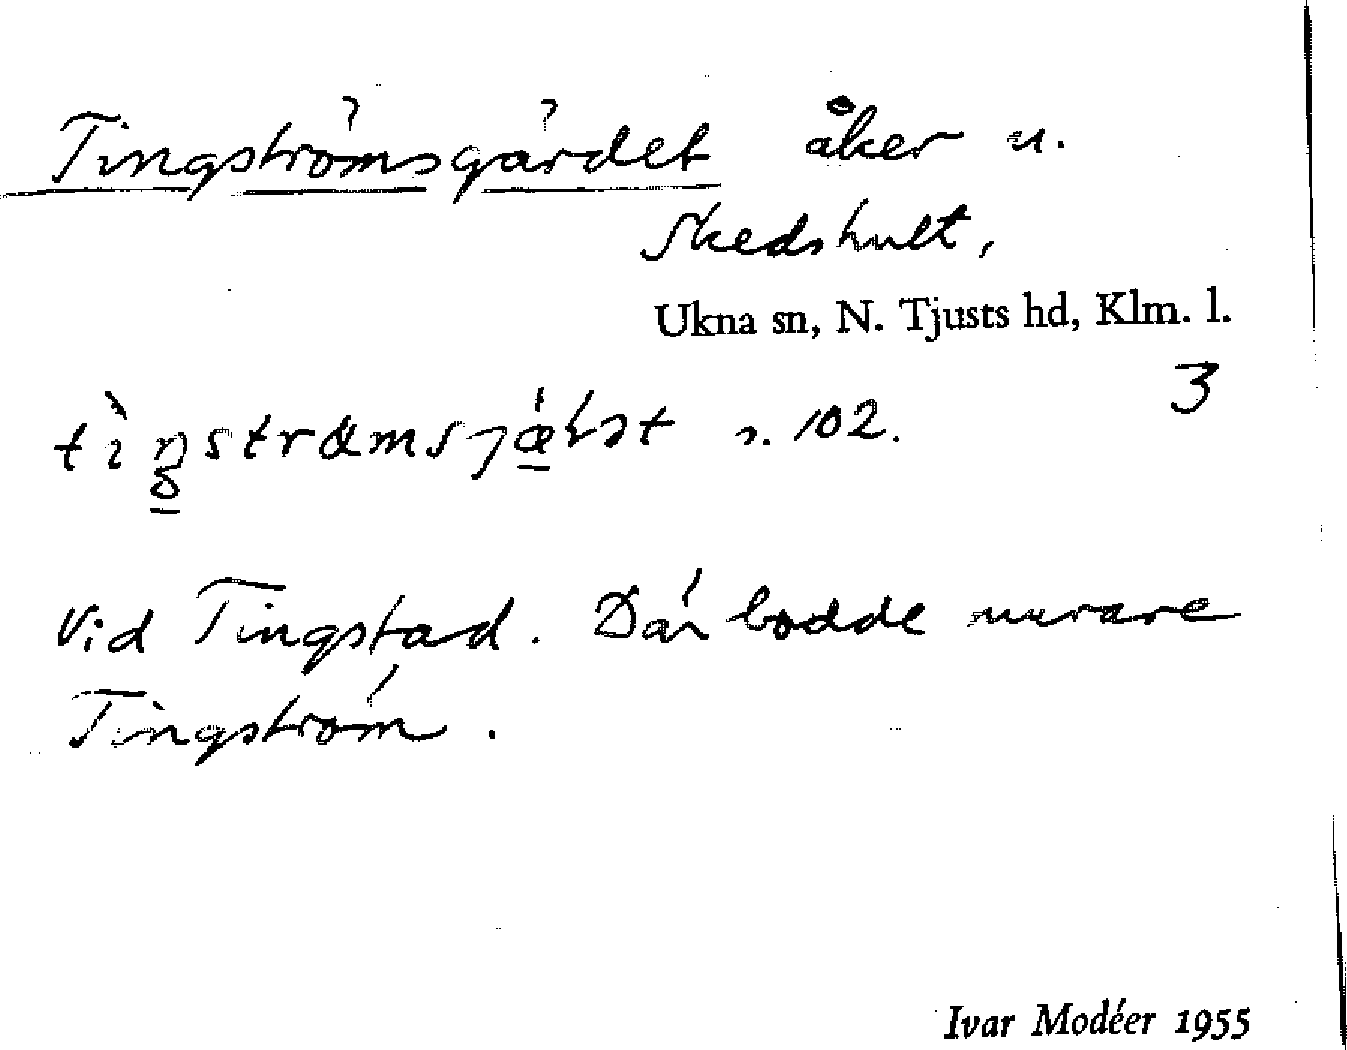 Tingströmsgärdet åker u.
Skedshult,
Ukna sn, N. Tjusts hd, Klm. l.
3
s. 102.
Vid Tingstad. Där bodde murare
Tingström.
Ivar Modéer 1955